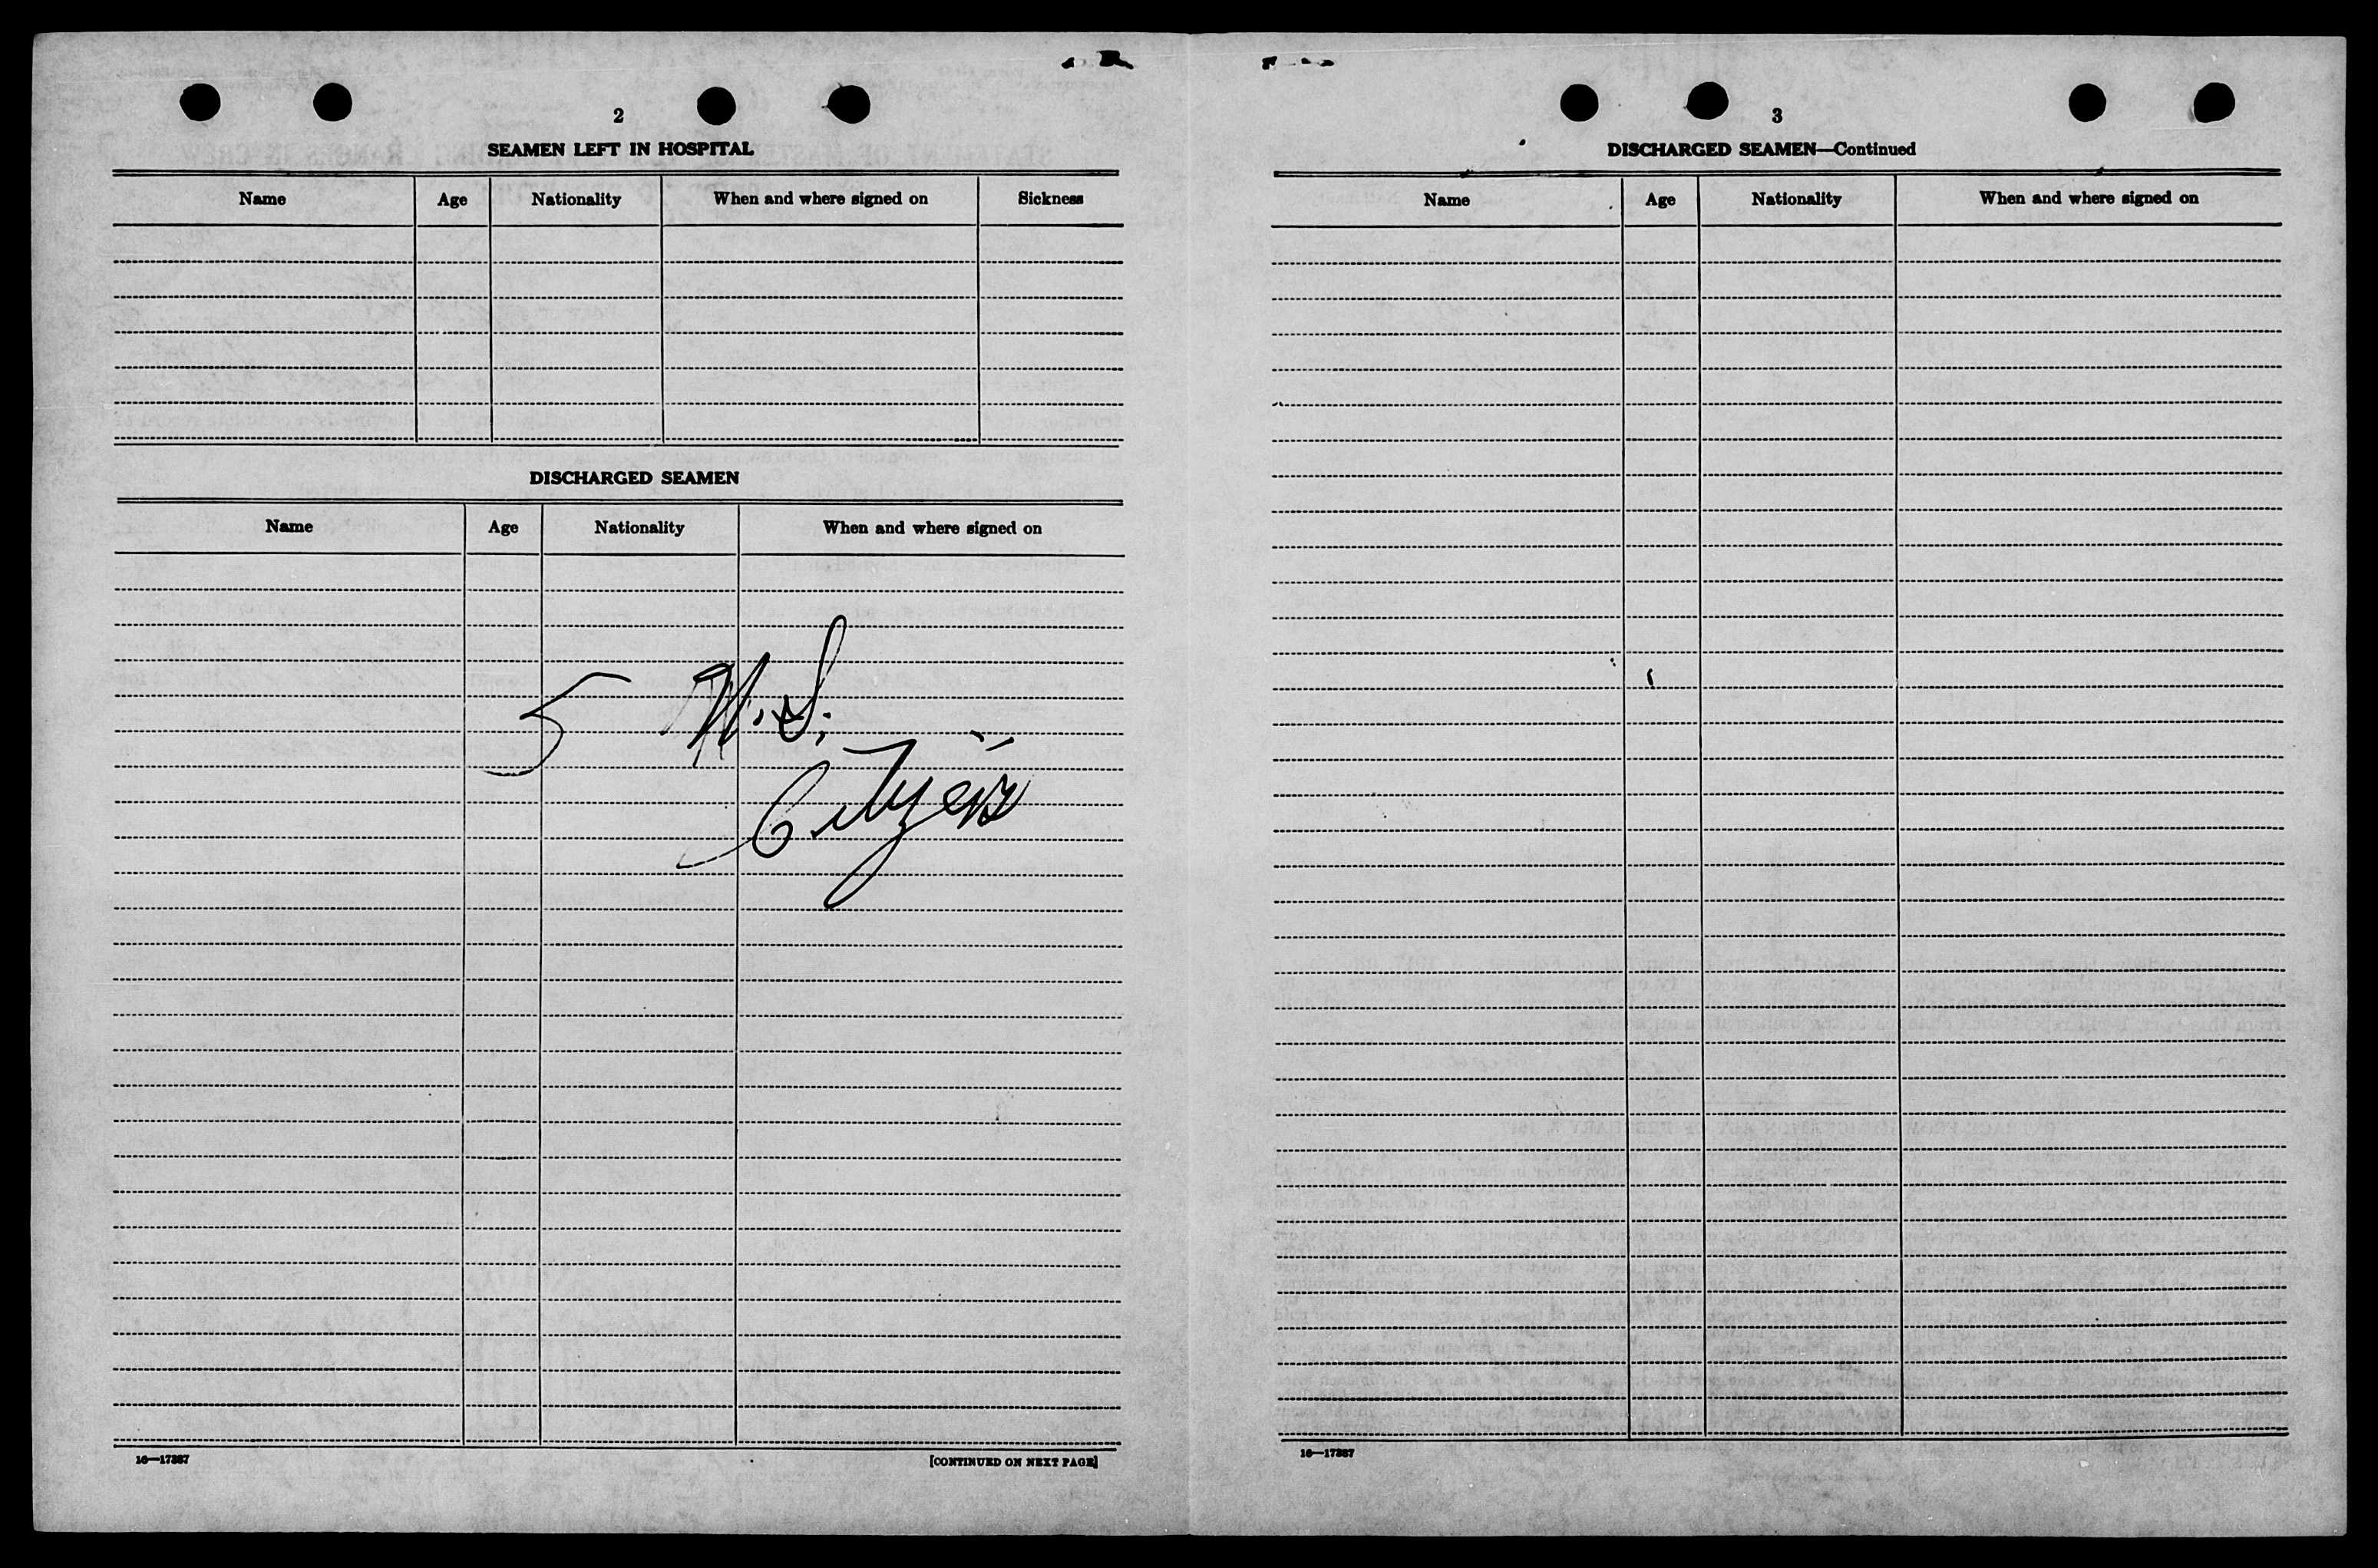 2
SEAMEN LEFT IN HOSPITAL
Name Age Nationality When and where signed on Sickness
DISCHARGED SEAMEN
Name Age Nationality When and where signed on
5 U.S.
Cityens
16—17387 [CONTINUED ON NEXT PAGE]
3
DISCHARGED SEAMEN—Continued
Name Age Nationality When and where signed on
16—17387